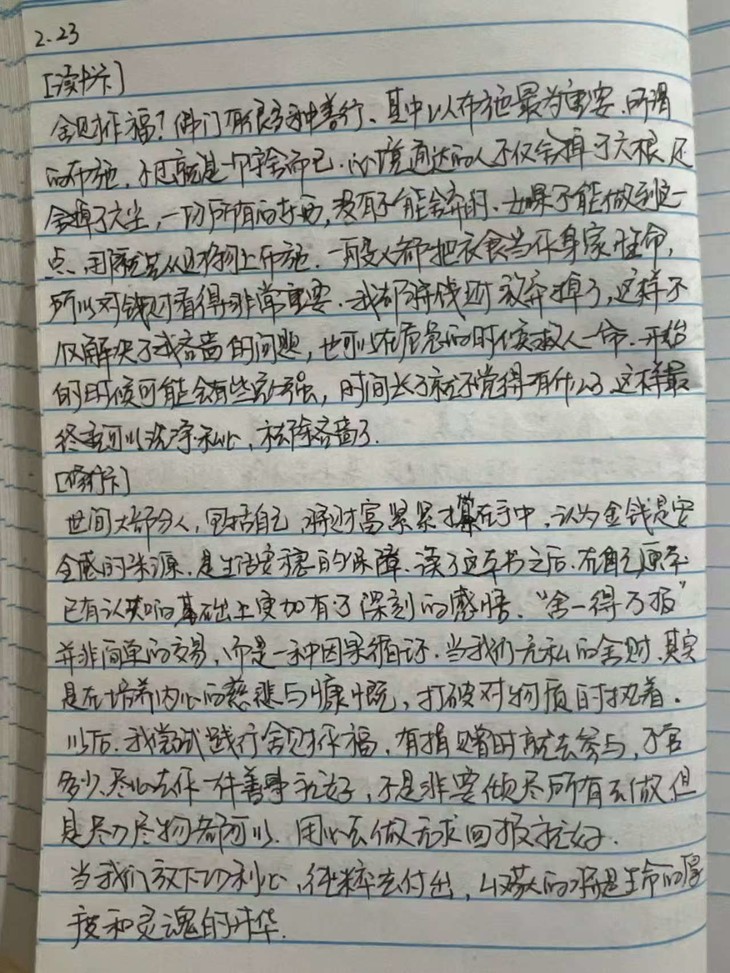 2.23
[读书卡]
舍财作福?佛门有很多种善行、其中以布施最为重要.所谓
的布施,不过就是一个字舍而已.心境通达的人不仅舍掉了六根,还
舍掉了六尘,一切所有的东西,没有不能舍弃的.如果不能做到这一
点、那就先从财物上布施.一般人都把衣食当作身家性命,
所以对钱财看得非常重要.我都将钱财放弃掉了,这样不
仅解决了我吝啬的问题,也可以在危急的时候救人一命.开始
的时候可能会有些勉强,时间长了就不觉得有什么了.这样最
终可以洗净私心,祛除吝啬了.
[修行卡]
世间大部分人,包括自己,将财富紧紧攥在手中,认为金钱是安
全感的来源.是生活安稳的保障.读了这本书之后.在自己原本
已有认知的基础上更加有了深刻的感悟."舍一得万报"
并非简单的交易,而是一种因果循环.当我们无私的舍财.其实
是在培养内心的慈悲与慷慨,打破对物质的执着.
以后.我尝试践行舍财作福,有捐赠时就去参与,不管
多少、尽心去作一件善事就好,不是非要倾尽所有去做但
是尽力尽物都可以.用心去做无求回报就好.
当我们放下功利心,纯粹去付出,收获的将是生命的厚
度和灵魂的升华.